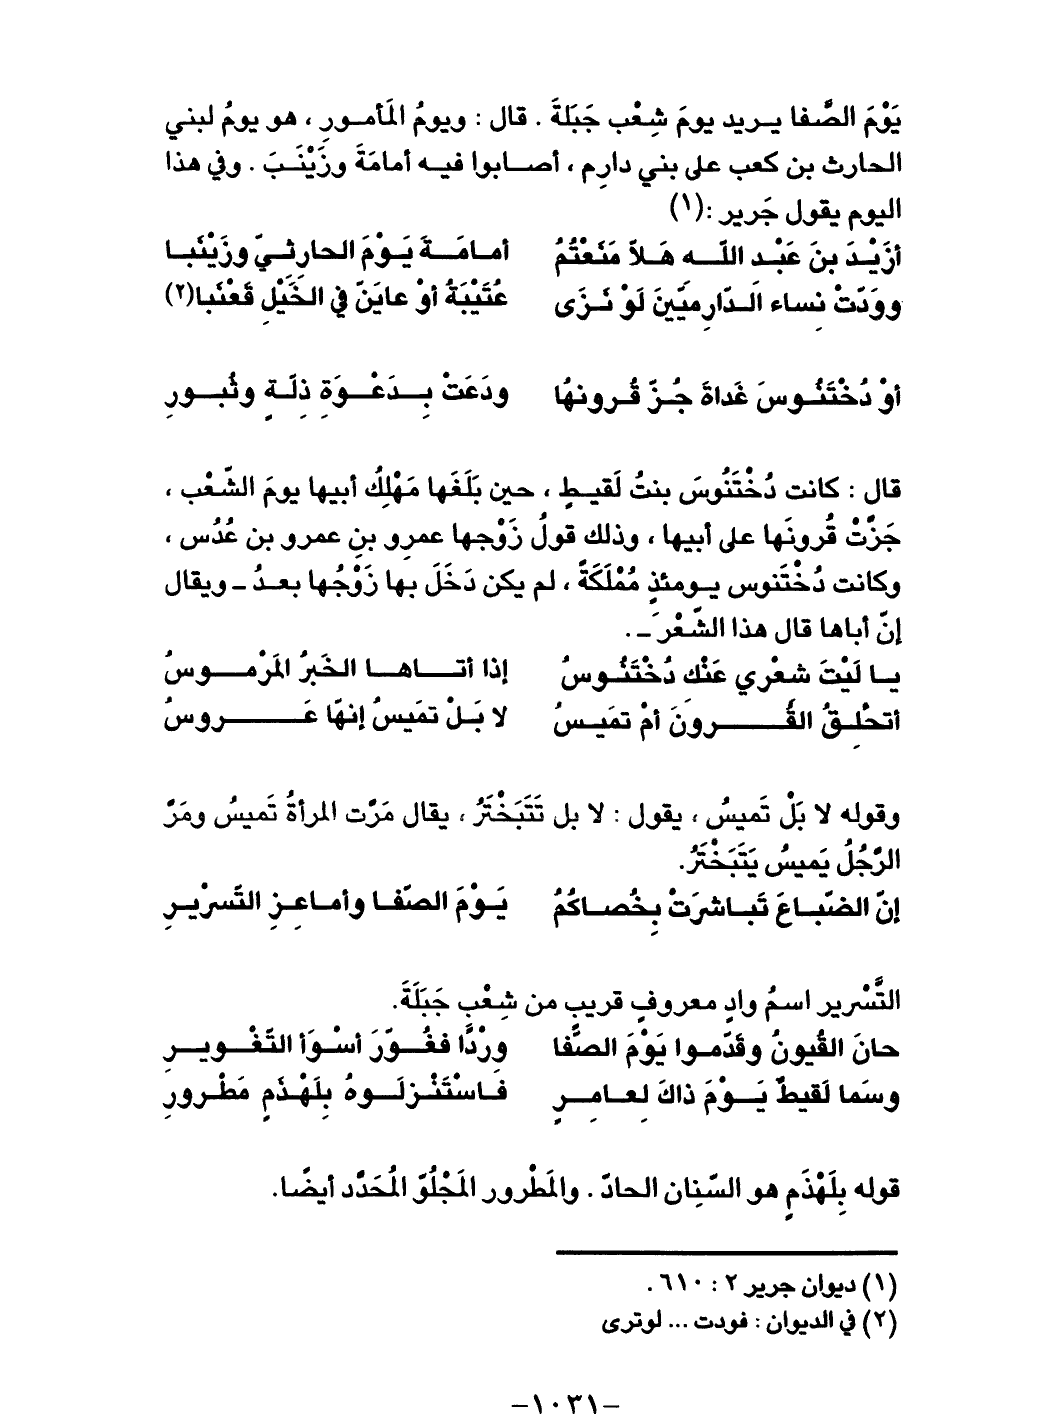 يَوْمَ الصَّفا يـريد يومَ شِعْب جَبَلَةَ . قال : ويومُ المَأمـورِ ، هو يومُ لبني
الحارث بن كعب على بني دارِم ، أصـابوا فيـه أمامَةَ وزَيْنَـبَ . وفي هذا
اليوم يقول جَرير :(١)
أزَيْـدَ بنَ عَبْـد اللّـه هَـلاّ مَنَعْتُمُ أمـامَـةَ يَـوْمَ الحارثـيّ وزَيْنَبـا
وودَتْ نِساء الـدّارِميّينَ لَوْ نَـرَى عُتَيْبَةُ أوْ عايَنّ في الخَيْلِ قَعْنَبا(٢)
أوْ دُخْتَنُـوسَ غَداةَ جُـزّ قُـرونهُا ودَعَتْ بِـدَعْـوَةِ ذِلّـةٍ وثُبـورِ
قال : كانت دُخْتَنُوسَ بنتُ لَقيـطٍ ، حين بَلَغَها مَهْلِكُ أبيها يومَ الشّعْب ،
جَزَّتْ قُرونَها على أبيها ، وذلك قولُ زَوْجها عمرِو بنِ عمرو بن عُدُس ،
وكانت دُخْتَنوس يـومئذٍ مُمْلَكَةً ، لم يكن دَخَلَ بها زَوْجُها بعـدُ ـ ويقال
إنّ أباها قال هذا الشّعْرَ ـ .
يـا لَيْتَ شعْري عَنْك دُخْتَنُـوسُ إذا أتـاهـا الخَبرُ المَرْمـوسُ
أتحْلِـقُ القُـرونَ أمْ تميَـسُ لا بَـلْ تميَسُ إنهّا عَـروسُ
وقوله لا بَلْ تَميسُ ، يقول : لا بل تَتَبَخْتَرُ ، يقال مَرَّت المرأةُ تَميسُ ومَرَّ
الرَّجُلُ يَميسُ يَتَبَخْتَرُ.
إنّ الضّبـاعَ تَبـاشرَتْ بِخُصـاكُمُ يَـوْمَ الصّفـا وأمـاعِـزِ التَّسرْيـرِ
التَّسْرير اسمُ وادٍ معروفٍ قريبٍ من شِعْبِ جَبَلَةَ.
حانَ القُيونُ وقَدّمـوا يَوْمَ الصَّفا وِرْدًا فغُـوّرَ أسْـوَأ التّغْـويـرِ
وسَما لَقيطٌ يَـوْمَ ذاكَ لِعـامِـرٍ فـاسْتَنْـزلَـوهُ بِلَهْـذَمٍ مَطْـرورِ
قوله بِلَهْذَمٍ هو السّنِان الحادّ . والمَطْرور المَجْلُوّ المُحَدَّد أيضًا.
(١) ديوان جرير ٢ : ٦١٠ .
(٢) في الديوان : فودت ... لوترى
-١٠٣١-